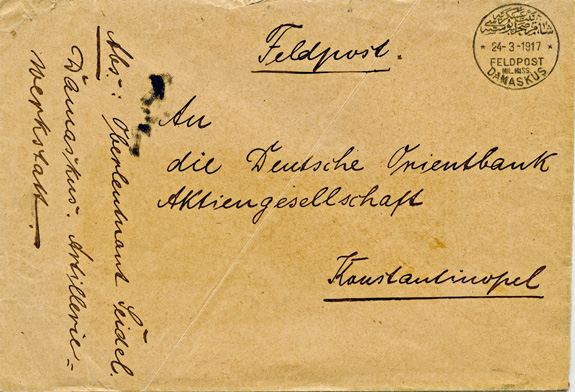 Feldpost.
* 24-3-1917 *
FELDPOST
MIL. MISS.
DAMASKUS
An
die Deutsche Orientbank
Aktiengesellschaft
Konstantinopel
Abs: Oberleutnant Seidel.
Damaskus. Artillerie=
werkstatt.